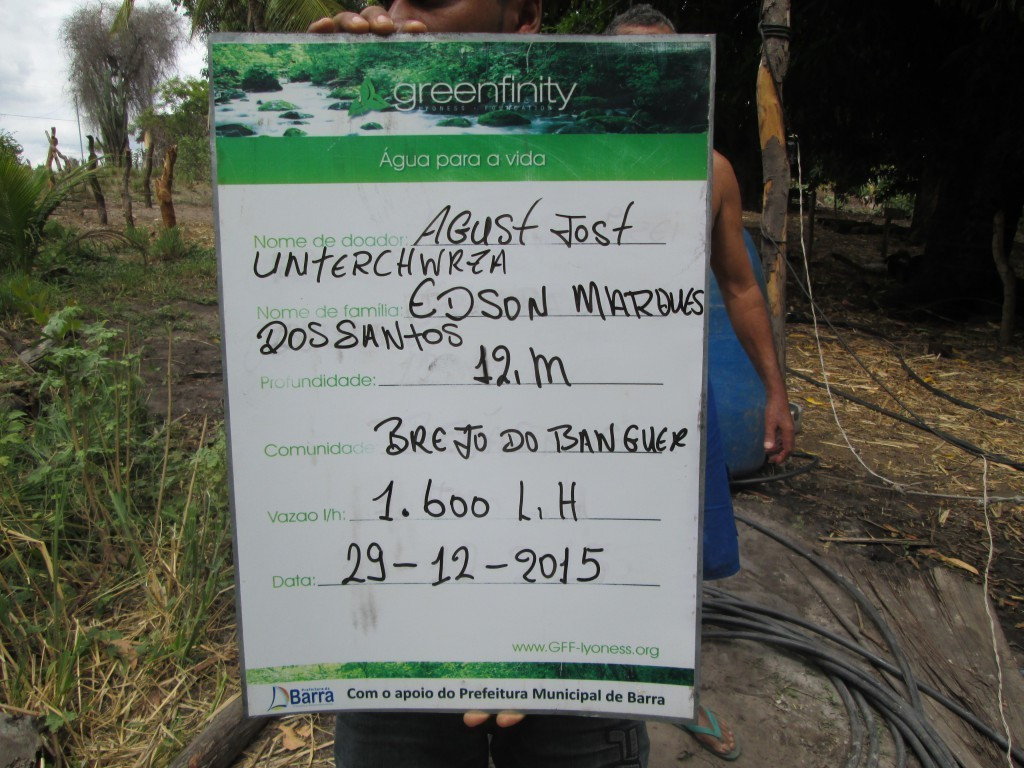 greenfinity
LYONESS FOUNDATION
Água para a vida
Nome de doador: AGUST JOST
UNTERCHWRZA
Nome de família: EDSON MARQUES
DOS SANTOS
Profundidade: 12, M
Comunidade BREJO DO BANGUER
Vazao l/h: 1.600 L, H
Data: 29-12-2015
www.GFF-lyoness.org
Prefeitura de
Barra Com o apoio do Prefeitura Municipal de Barra